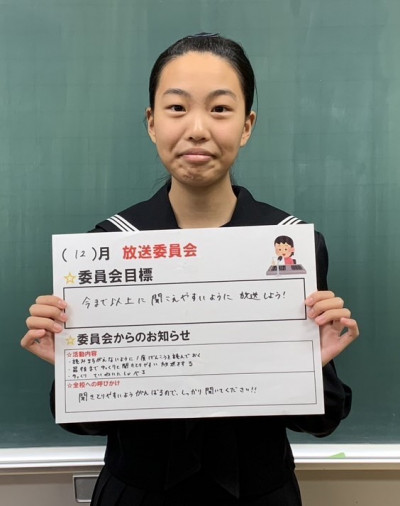 ( 12 )月 放送委員会
☆委員会目標
今まで以上に 聞こえやすいように 放送しよう!
☆委員会からのお知らせ
☆活動内容
・読みまちがえないように1度げんこうを読んでおく
・最後までゆっくりと聞きとりやすい放送をする
☆全校への呼びかけ
聞きとりやすいようがんばるので、しっかり聞いてください!!